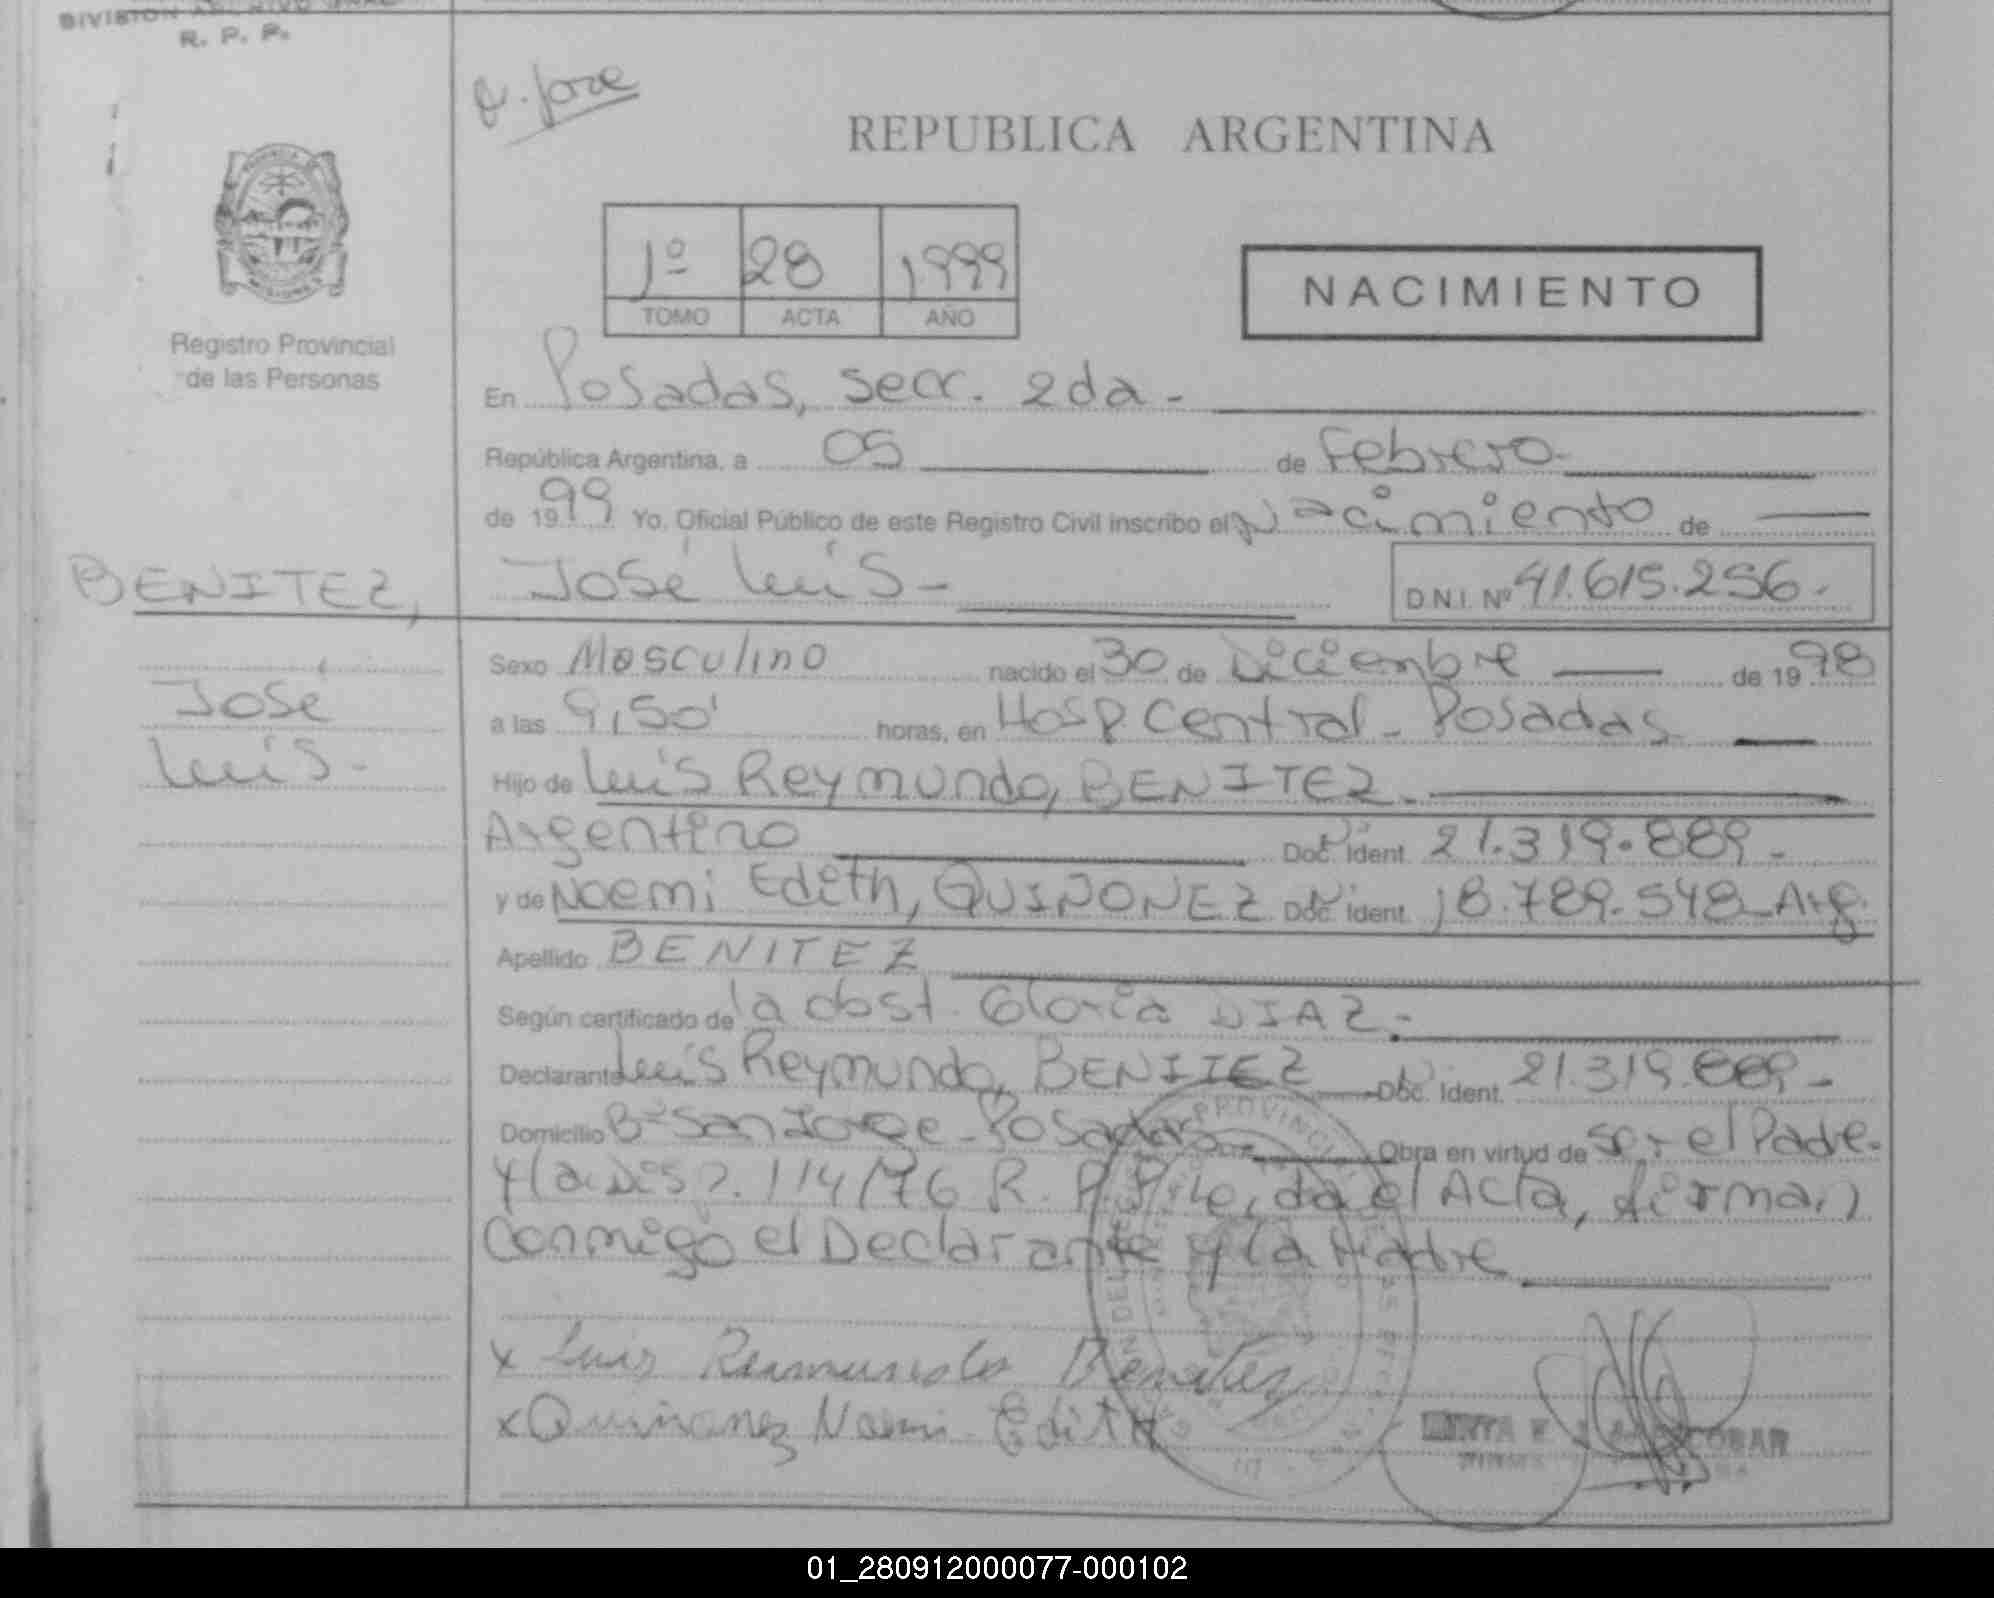 DIVISION ARCHIVO GRAL
R. P. P.
REPUBLICA ARGENTINA
1º 28 1999
TOMO ACTA AÑO
NACIMIENTO
MISIONES
Registro Provincial
de las Personas
En Posadas, secc. 2da -
República Argentina, a 05 de Febrero-
de 1999 Yo, Oficial Público de este Registro Civil inscribo el Nacimiento de
BENITEZ, José Luis - D.N.I. Nº 41.615.256.-
José
Luis.-
Sexo Masculino nacido el 30 de Diciembre de 1998
a las 9,50' horas, en Hosp Central - Posadas
Hijo de Luis Reymundo, BENITEZ.
Argentino Doc. Ident. 21.319.889.-
y de Noemi Edith, QUIÑONEZ Doc. Ident. 18.789.548-Arg.
Apellido BENITEZ
Según certificado de la obst. Gloria DIAZ.-
Declarante Luis Reymundo, BENITEZ Doc. Ident. 21.319.889.-
Domicilio Bº San Jorge - Posadas Obra en virtud de ser el Padre.
y la Disp. 114/76 R. P. P. Leida el Acta, firman
conmigo el Declarante y la Madre
x Luis Reimundo Benitez
x Quiñonez Noemi Edith
ESCOBAR
01_280912000077-000102